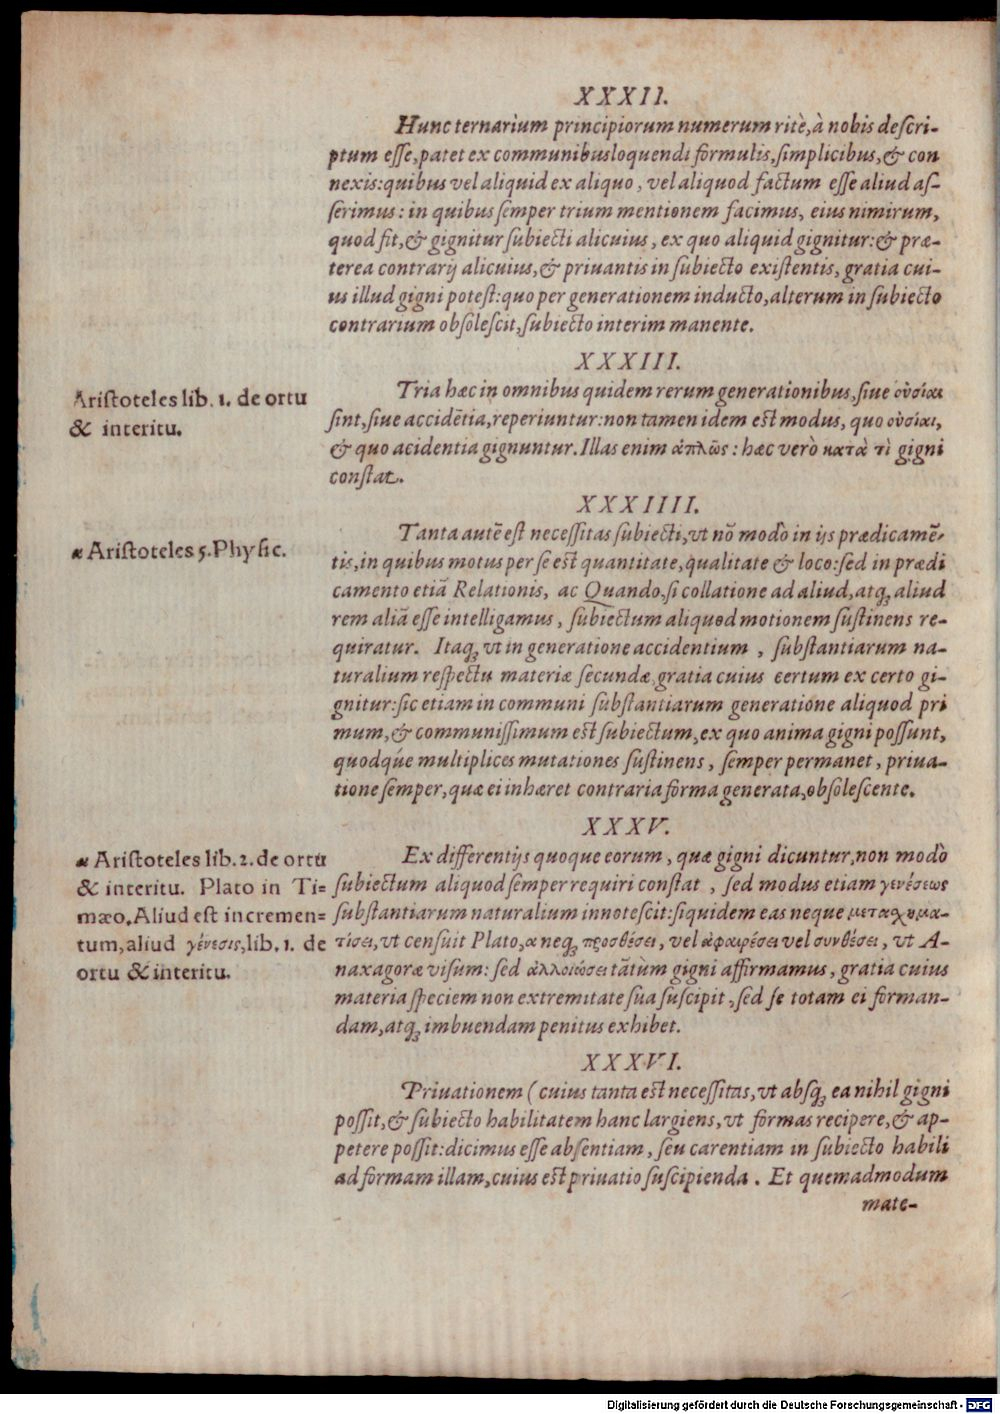 XXXII.
Hunc ternarium principiorum numerum ritè, à nobis descri-
ptum esse, patet ex communibus loquendi formulis, simplicibus, & con
nexis: quibus vel aliquid ex aliquo, vel aliquod factum esse aliud as-
serimus: in quibus semper trium mentionem facimus, eius nimirum,
quod fit, & gignitur subiecti alicuius, ex quo aliquid gignitur: & præ-
terea contrarij alicuius, & priuantis in subiecto existentis, gratia cui-
us illud gigni potest: quo per generationem inducto, alterum in subiecto
contrarium obsolescit, subiecto interim manente.
XXXIII.
Tria hæc in omnibus quidem rerum generationibus, siue οὐσίαι
sint, siue accidētia, reperiuntur: non tamen idem est modus, quo οὐσίαι,
& quo acidentia gignuntur. Illas enim ἁπλῶς: hæc verò κατὰ τὶ gigni
constat.
Aristoteles lib. 1. de ortu
& interitu.
XXXIIII.
Tanta autē est necessitas subiecti, vt nō modò in ijs prædicamē-
tis, in quibus motus per se est quantitate, qualitate & loco: sed in prædi
camento etiā Relationis, ac Quando, si collatione ad aliud, atq; aliud
rem aliā esse intelligamus, subiectum aliquod motionem sustinens re-
quiratur. Itaq; vt in generatione accidentium, substantiarum na-
turalium respectu materiæ secundæ, gratia cuius certum ex certo gi-
gnitur: sic etiam in communi substantiarum generatione aliquod pri
mum, & communissimum est subiectum, ex quo anima gigni possunt,
quodqúe multiplices mutationes sustinens, semper permanet, priua-
tione semper, quæ ei inhæret contraria forma generata, obsolescente.
a Aristoteles 5. Physic.
XXXV.
Ex differentijs quoque eorum, quæ gigni dicuntur, non modò
subiectum aliquod semper requiri constat, sed modus etiam γενέσεως
substantiarum naturalium innotescit: siquidem eas neque μετασχημα-
τίσει, vt censuit Plato, a neq; προσθέσει, vel ἀφαιρέσει vel συνθέσει, vt A-
naxagoræ visum: sed ἀλλοιώσει tātùm gigni affirmamus, gratia cuius
materia speciem non extremitate sua suscipit, sed se totam ei forman-
dam, atq; imbuendam penitus exhibet.
a Aristoteles lib. 2. de ortu
& interitu. Plato in Ti-
mæo. Aliud est incremen-
tum, aliud γένεσις, lib. 1. de
ortu & interitu.
XXXVI.
Priuationem (cuius tanta est necessitas, vt absq; ea nihil gigni
possit, & subiecto habilitatem hanc largiens, vt formas recipere, & ap-
petere possit: dicimus esse absentiam, seu carentiam in subiecto habili
ad formam illam, cuius est priuatio suscipienda. Et quemadmodum
mate-
Digitalisierung gefördert durch die Deutsche Forschungsgemeinschaft - DFG